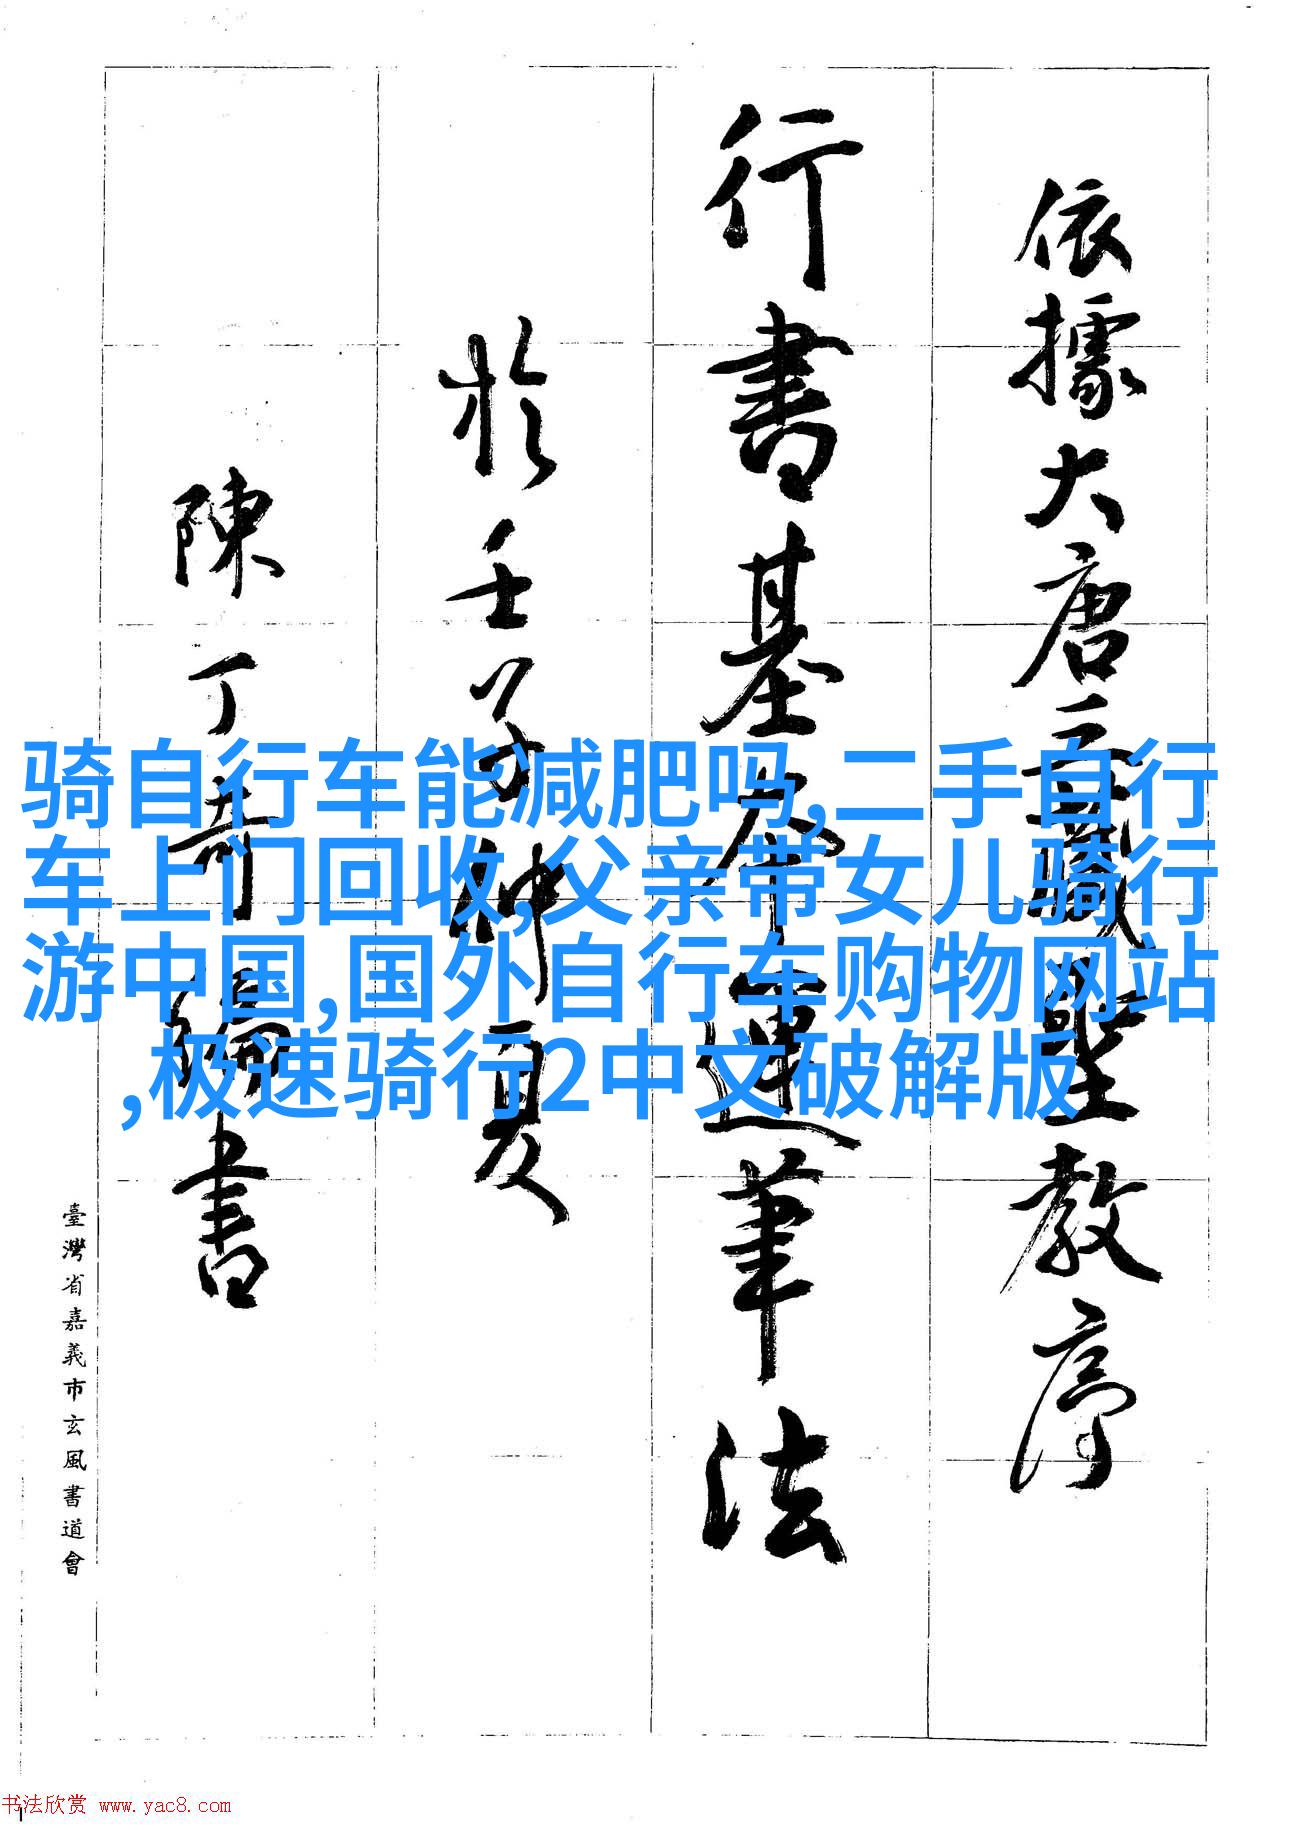 依據大唐三藏聖教序
行書基本運筆法
於壬子仲夏
陳丁奇編書
臺灣省嘉義市玄風書道會
骑自行车能减肥吗,二手自行
车上门回收,父亲带女儿骑行
游中国,国外自行车购物网站
,极速骑行2中文破解版
书法欣赏 www.yac8.com